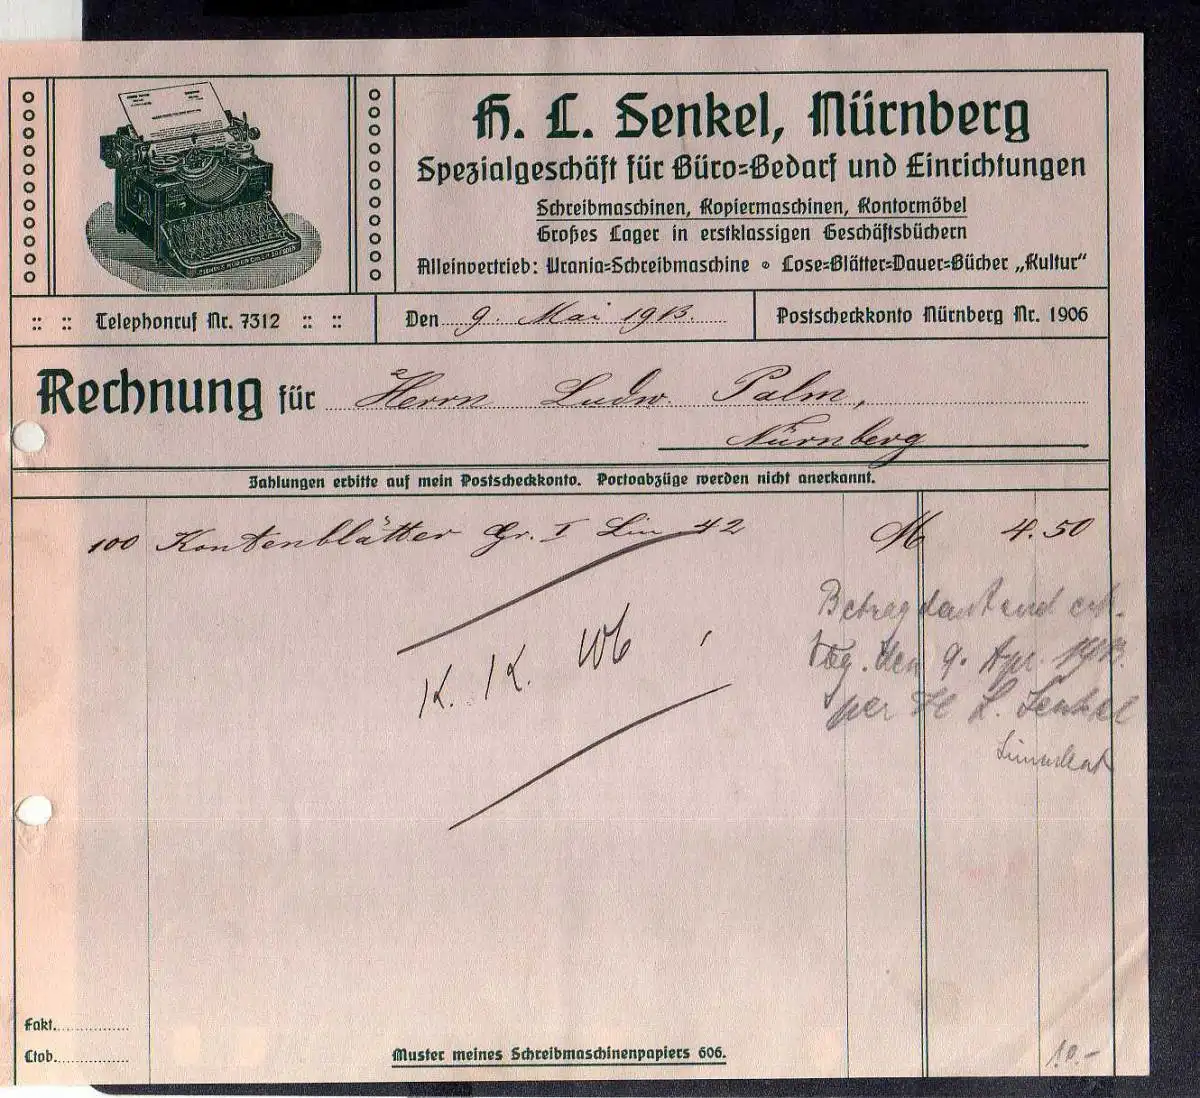 H. L. Senkel, Nürnberg
Spezialgeschäft für Büro=Bedarf und Einrichtungen
Schreibmaschinen, Kopiermaschinen, Kontormöbel
Großes Lager in erstklassigen Geschäftsbüchern
Alleinvertrieb: Urania=Schreibmaschine • Lose=Blätter=Dauer=Bücher „Kultur“
:: :: Telephonruf Nr. 7312 :: ::
Den 9. Mai 1913.
Postscheckkonto Nürnberg Nr. 1906
Rechnung für Herrn Ludw. Palm,
Nürnberg
Zahlungen erbitte auf mein Postscheckkonto. Portoabzüge werden nicht anerkannt.
100 Kontenblätter Gr. I Lin 42 M 4.50
Betrag dankend erh.
den 9. 1913.
per H L. Senkel
K. K.
Fakt.
Ctob.
Muster meines Schreibmaschinenpapiers 606.
10.-